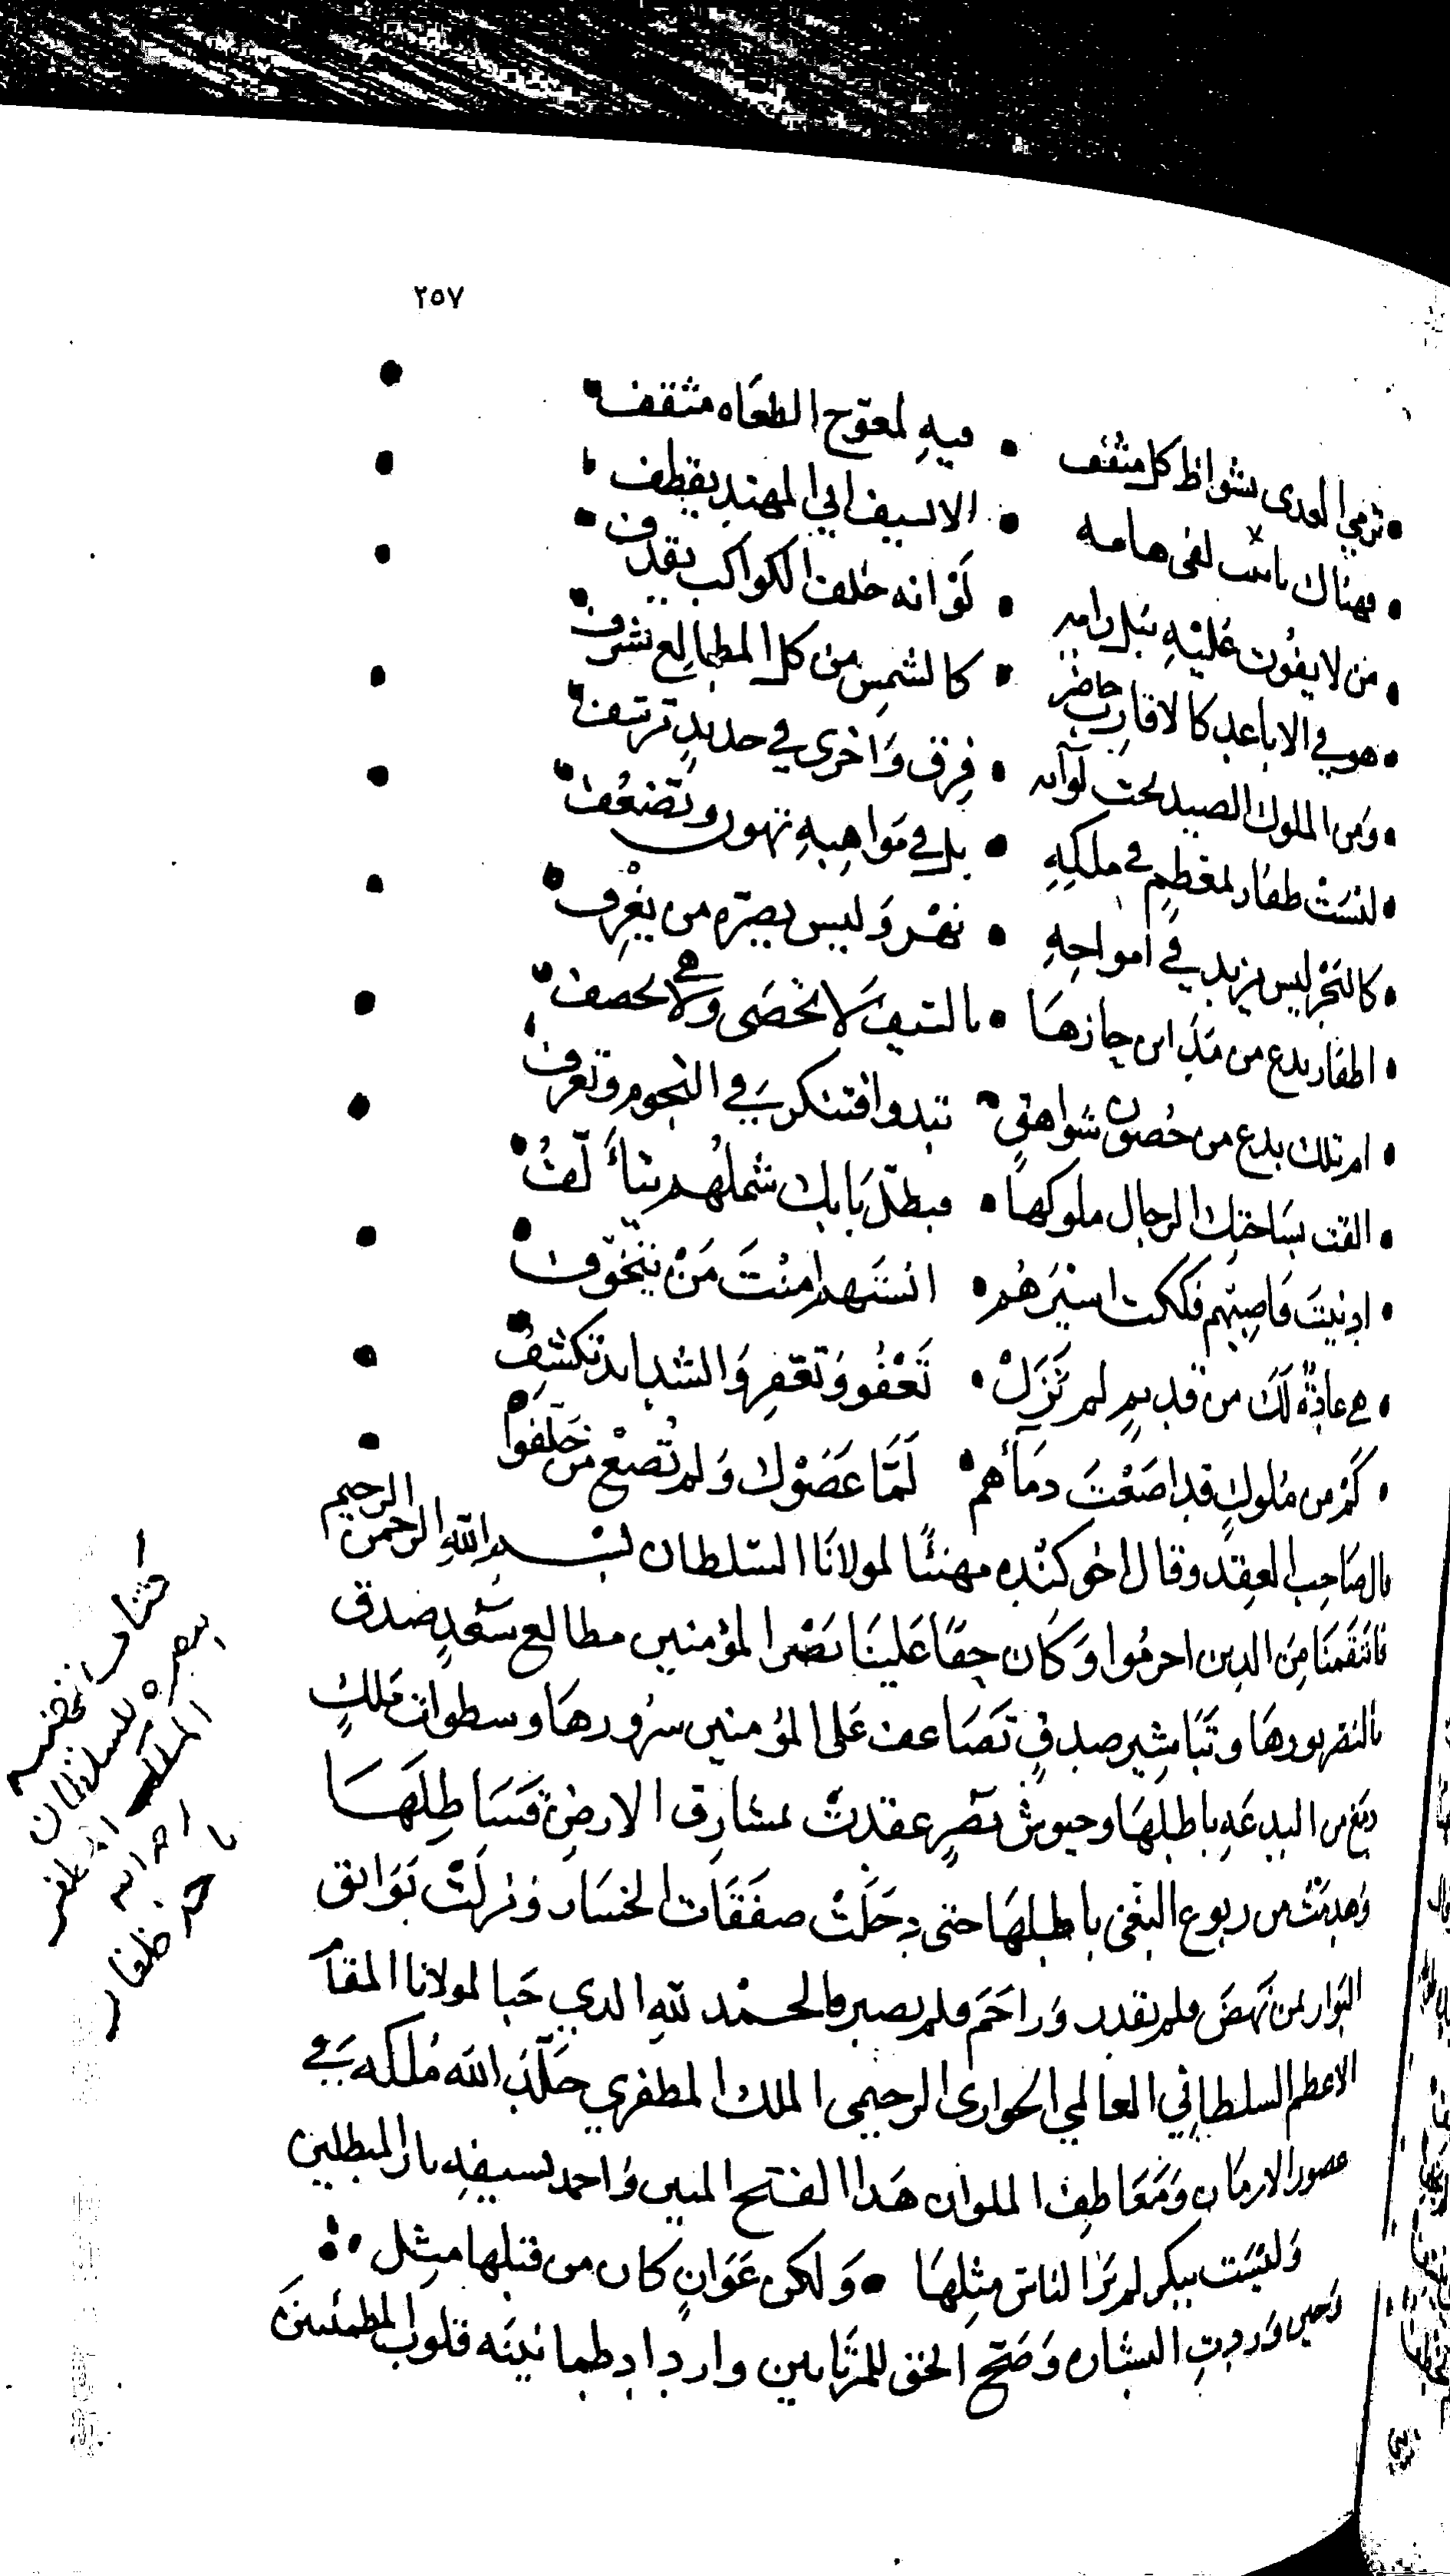 ٢٥٧
ترمي العدى بشواظ كل مثقف • فيه لمعوج الطغاه مثقف
فهناك لفى هامه • الا لسيف ابي المهند يقطف
من لا يفوت عليه نبل رامه • لو انه خلف الكواكب يقذف
هو في الاباعد كالاقارب حاضر • كالشمس من كل المطالع تشرف
ومن الملوك الصيد تحت لوآيه • فرق واخرى في حديد ترسف
ليست ظفار لمعظم في ملكه • بل في مواهبه تهون وتضعف
كالبحر ليس يزيد في امواجه • نهر وليس يضره من يغرف
اظفار بدع من مداين حازها • بالسيف لا تحصى ولا هي تحصف
ام تلك بدع من حصون شواهق • تبدوا فتنكر في النجوم وتعرف
القت بساحتك الرجال ملوكها • فبظل بابك شملهم يتألف
ادنيت قاصيهم فككت اسيرهم • انستهم امنت من يتخوف
هي عادة لك من قديم لم تزل • تعفو وتغفر والشدايد تكشف
كم من ملوك قد اضعت دمآهم • لما عصوك ولم تضع من خلفوا
قال صاحب العقد وقال اخو كنده مهنئا لمولانا السلطان بسم الله الرحمن الرحيم
فانتقمنا من الذين اجرموا وكان حقا علينا نصر المؤمنين مطالع سعد صدق
بالنصر نورها وتباشير صدق تضاعف على المؤمنين سرورها وسطوات ملك
دمغ من البدعه باطلها وجيوش نصر عقدت بمشارق الارض قساطلها
وهدمت من ربوع البغي باطلها حتى دخلت صفقات الخسار ونزلت بوائق
البوار بمن نهض فلم يقدر وراحم فلم يصبر فالحمد لله الذي حبا لمولانا المقام
الاعظم السلطاني العالمي الجوادى الرحيمى الملك المظفري خلد الله ملكه في
عصور الازمان ومعاطف الملوان هذا الفتح المبين واخمد بسيفه نار المبطلين
وليست ببكر لم تر الناس مثلها • ولكن عوان كان من قبلها مثل
وحين وردت البشاره وضح الحق للمرتابين وازداد طمانينه قلوب المطمئنين
للسلطان
الملك المظفر
ظفار